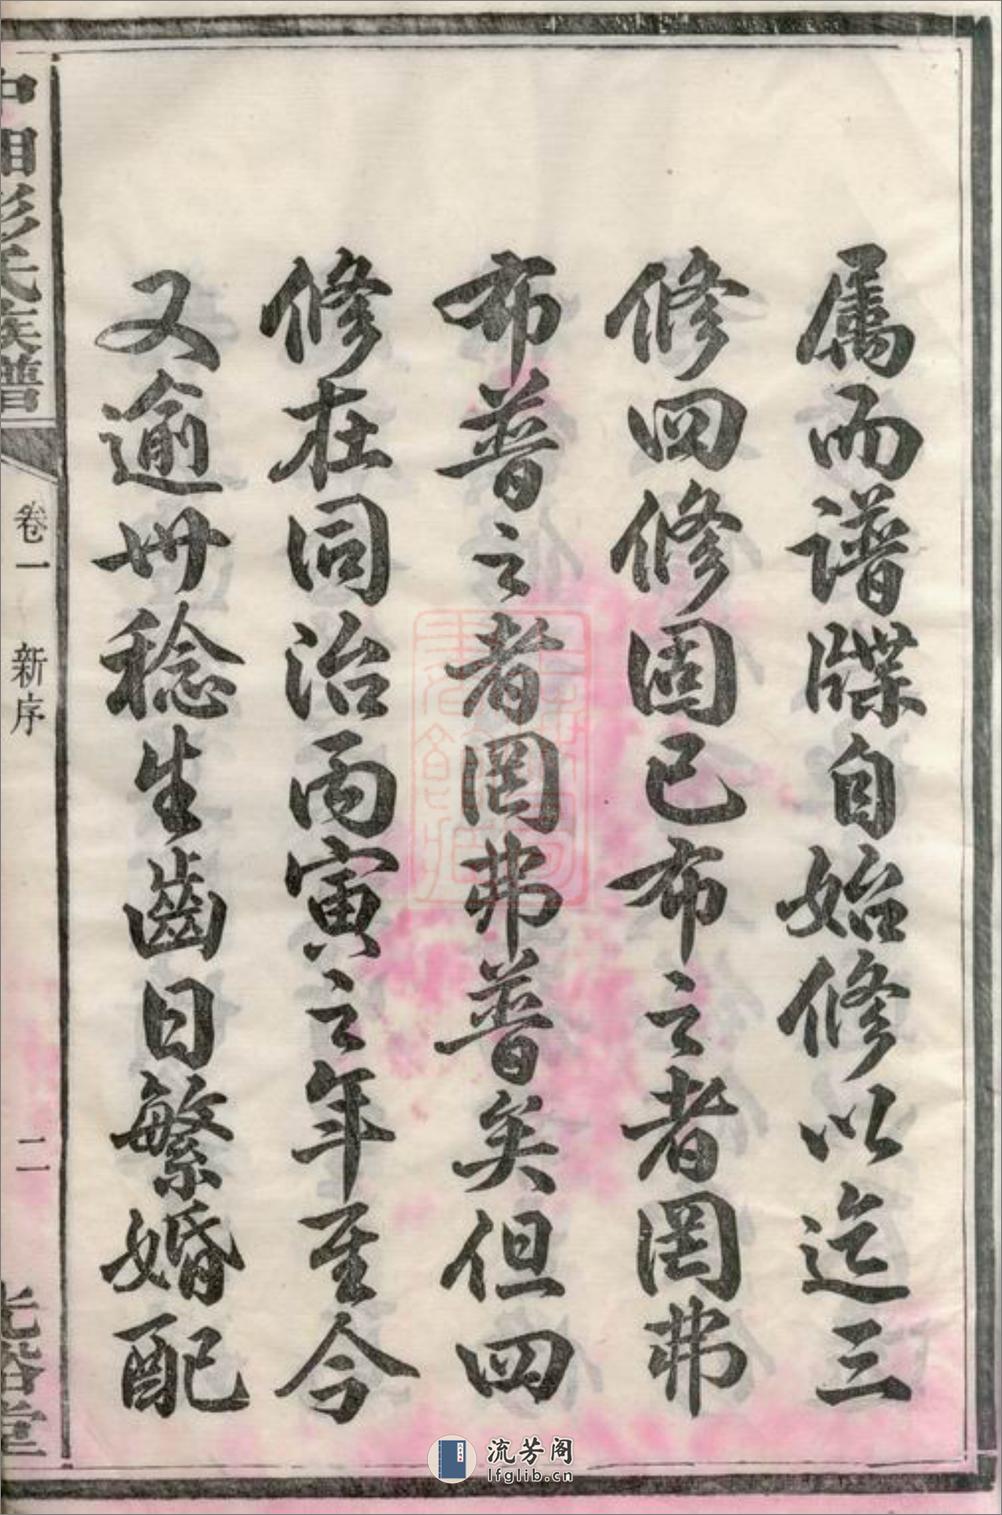 属而譜牒自始修以迄三
修四修固已布之者罔弗
布普之者罔弗普矣但四
修在同治丙寅之年至今
又逾卌稔生齒日繁婚配
中湘彭氏族譜
卷一 新序
二
光裕堂
流芳阁
lfglib.cn